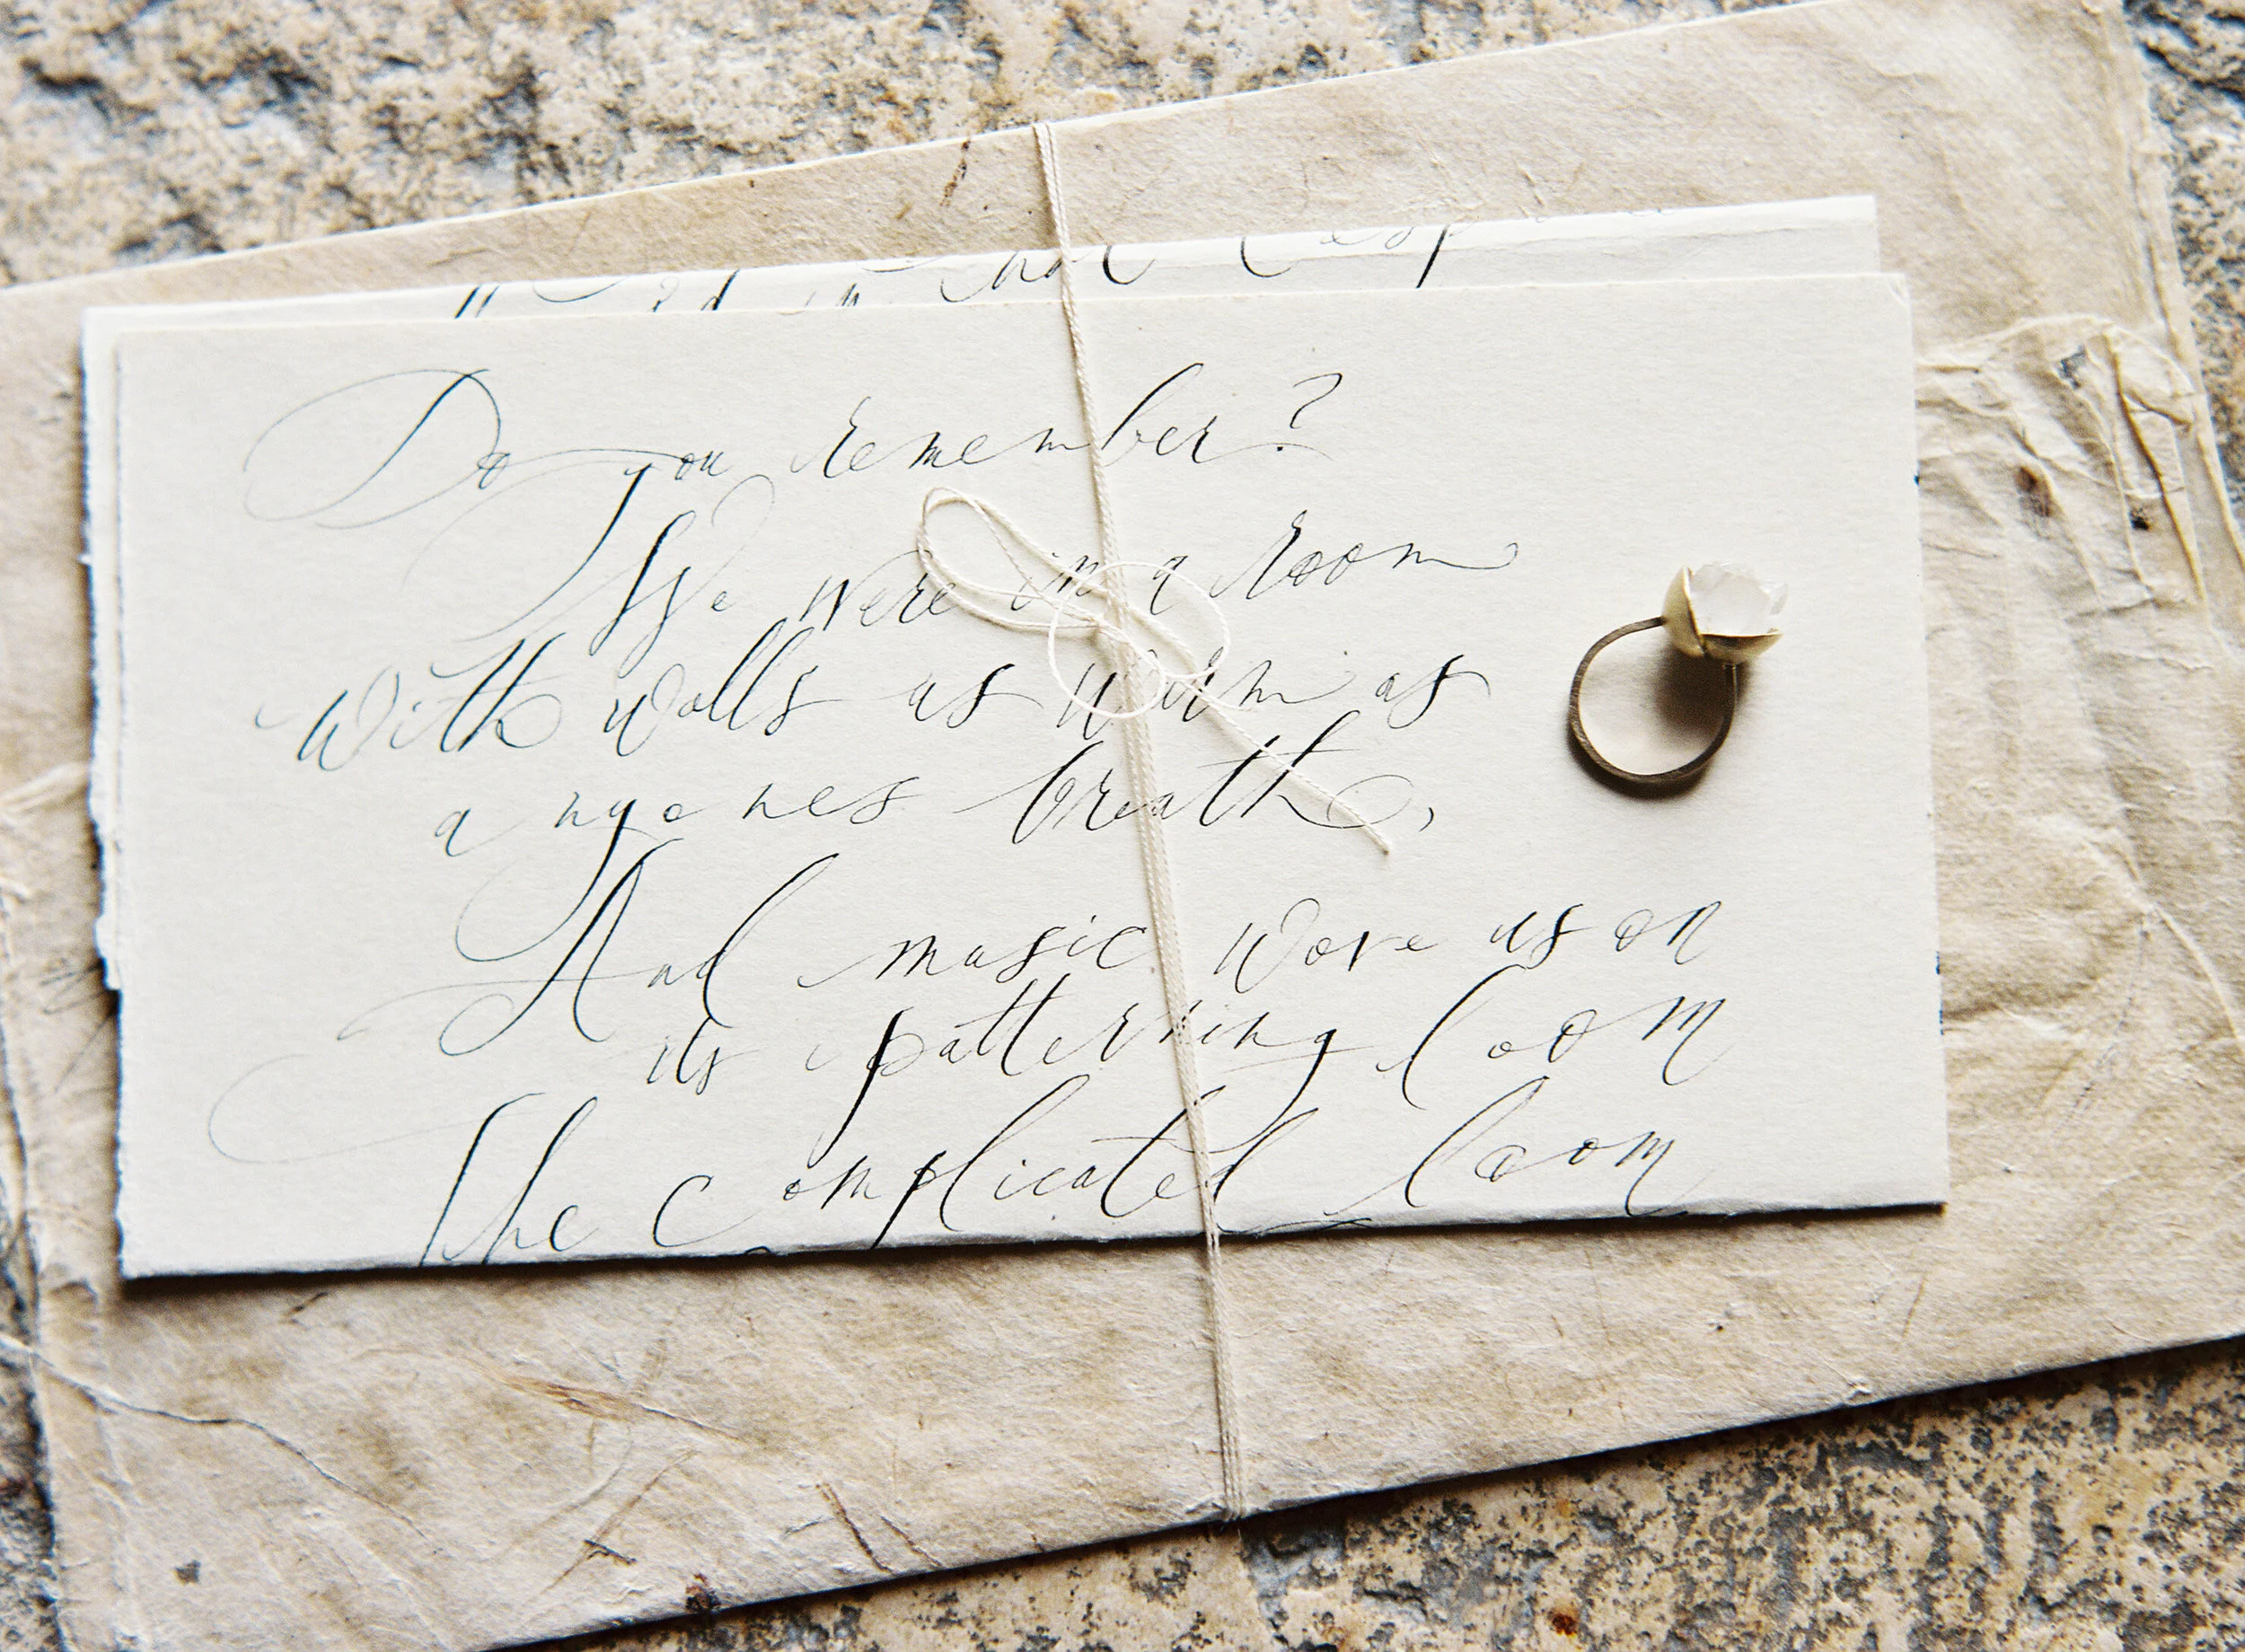 in that
Do you remember?
We were in a room
with walls as warm as
anyones breath,
And music wove us on
its patterning loom
The complicated loom